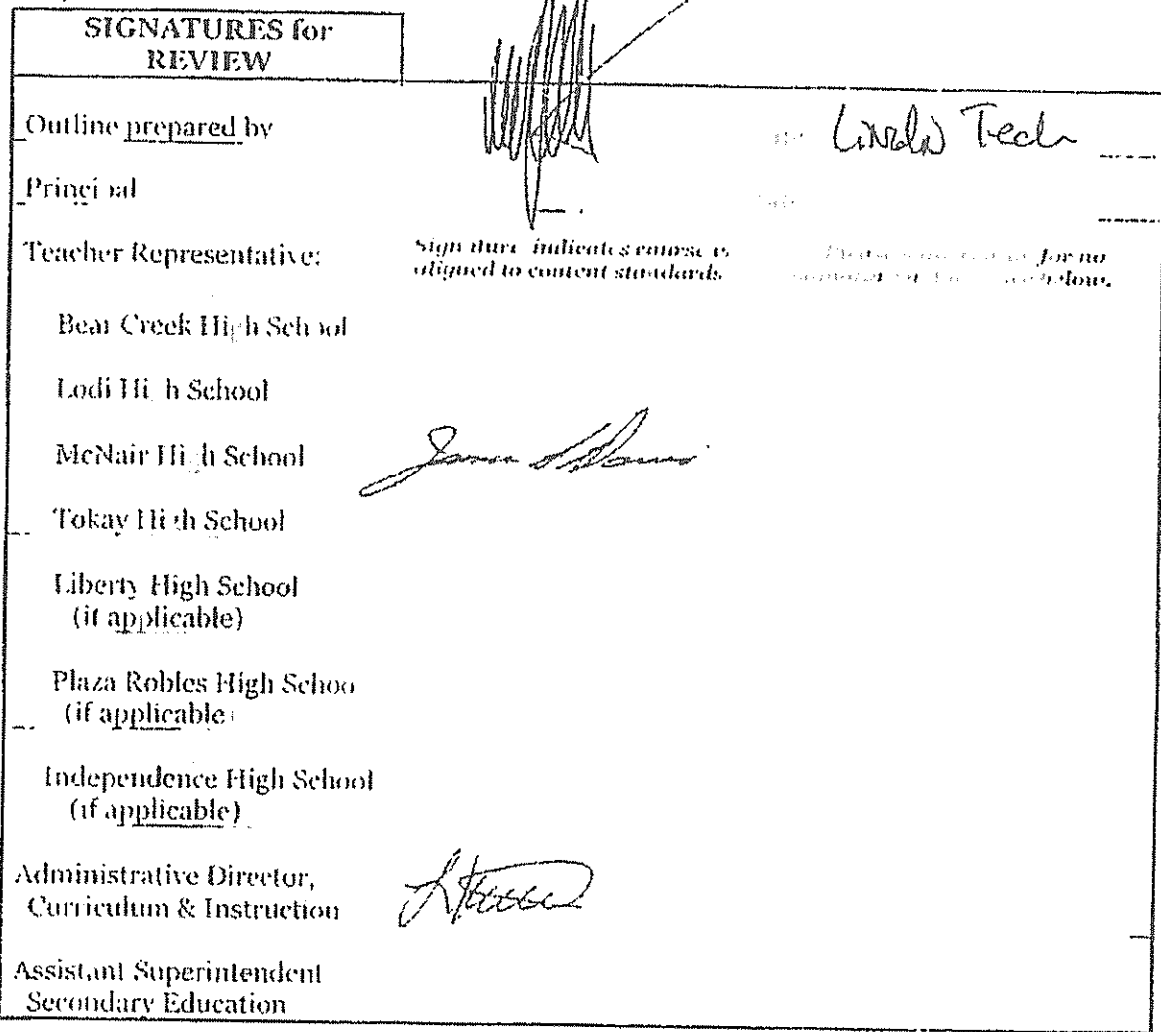 SIGNATURES for
REVIEW
Outline prepared by
Principal
Teacher Representative:
Signature indicates course is
aligned to content standards
for no
below.
Bear Creek High School
Lodi High School
McNair High School
Tokay High School
Liberty High School
(if applicable)
Plaza Robles High School
(if applicable)
Independence High School
(if applicable)
Administrative Director,
Curriculum & Instruction
Assistant Superintendent
Secondary Education